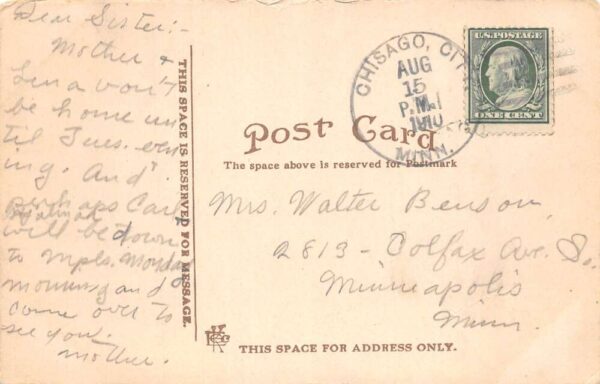 Dear Sister:-
Mother &
Lena won't
be home un
til Tues. even
ing. And
perhaps Carl
will be down
to Mpls. Monday
morning and
come over to
see you.
Mother.
THIS SPACE IS RESERVED FOR MESSAGE.
CHISAGO, CITY
AUG
15
P.M.
1910
MINN.
U.S. POSTAGE
ONE CENT
Post Card
The space above is reserved for Postmark
Mrs. Walter Benson,
2813 - Colfax Ave. So.
Minneapolis
Minn.
THIS SPACE FOR ADDRESS ONLY.